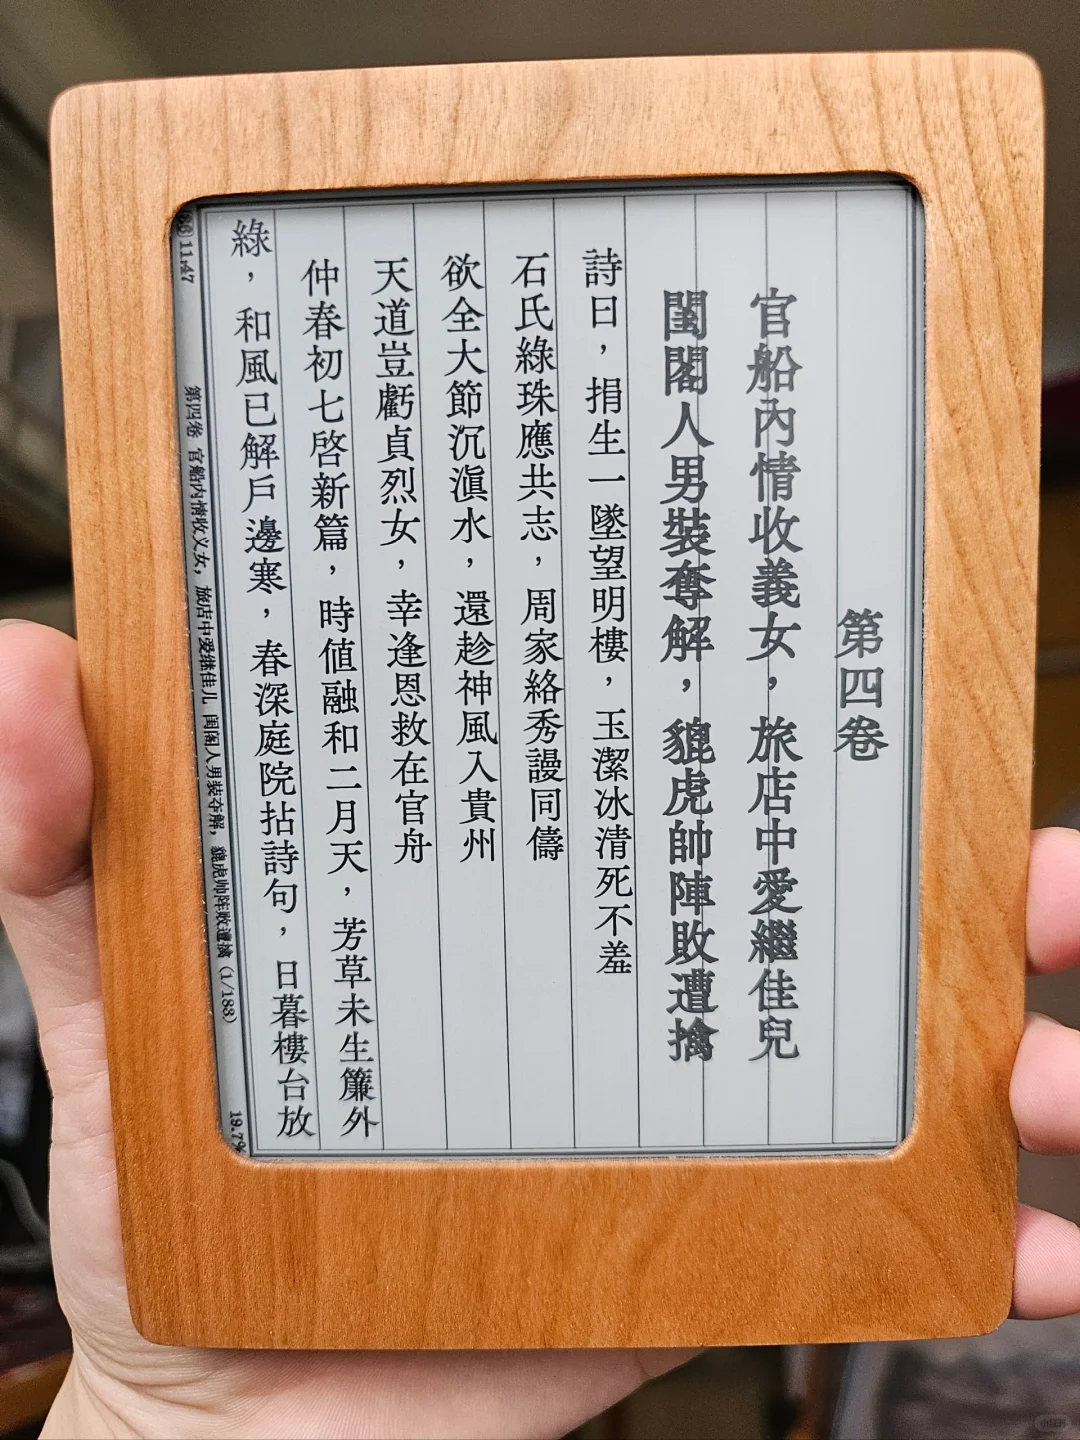 第四卷
官船內情收義女，旅店中愛繼佳兒
閨閣人男裝奪解，貔虎帥陣敗遭擒
詩曰，捐生一墜望明樓，玉潔冰清死不羞
石氏綠珠應共志，周家絡秀謾同儔
欲全大節沉滇水，還趁神風入貴州
天道豈虧貞烈女，幸逢恩救在官舟
仲春初七啓新篇，時値融和二月天，芳草未生簾外
綠，和風已解戶邊寒，春深庭院拈詩句，日暮樓台放
11:47
第四卷 官船內情收义女，旅店中爱继佳儿 闺阁人男装夺解，貔虎帅阵败遭擒 (1/183)